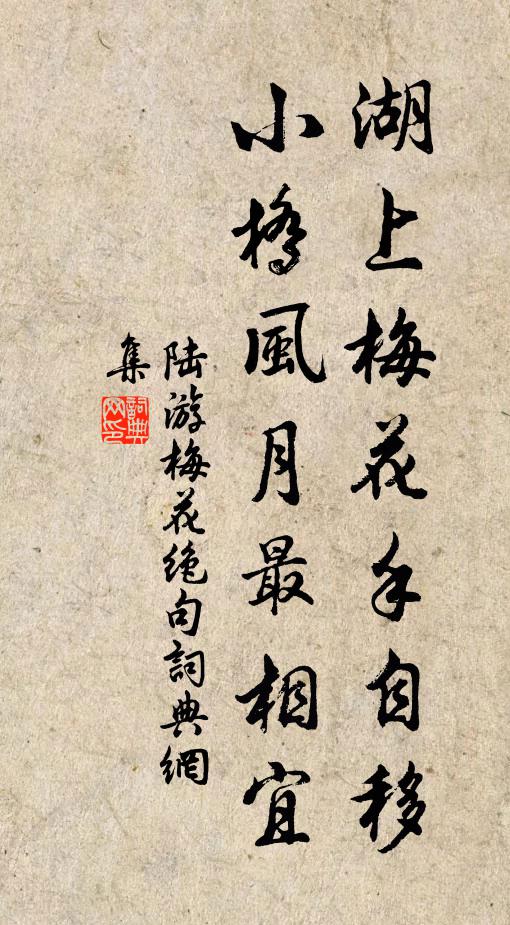 湖上梅花手自移
小橋風月最相宜
陸游梅花絶句詞典網
集
詞典
网印